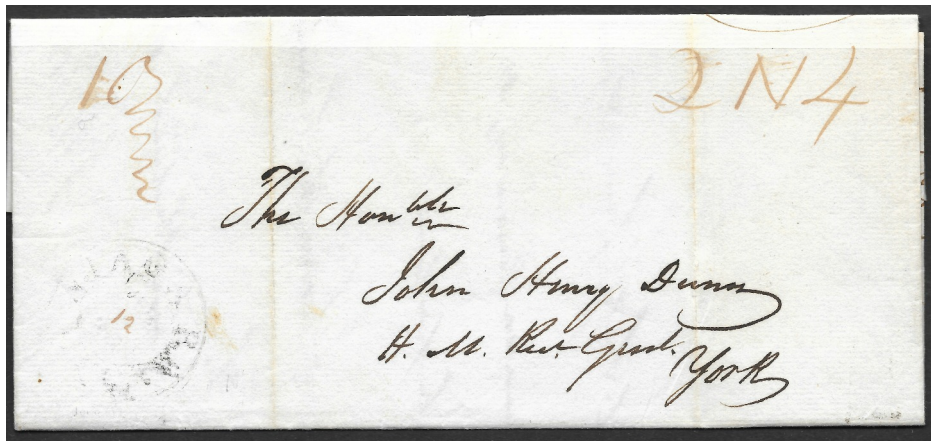 2 N 4
The Honble
John Henry Dunn
H. M. Recr. Genl.
York
12